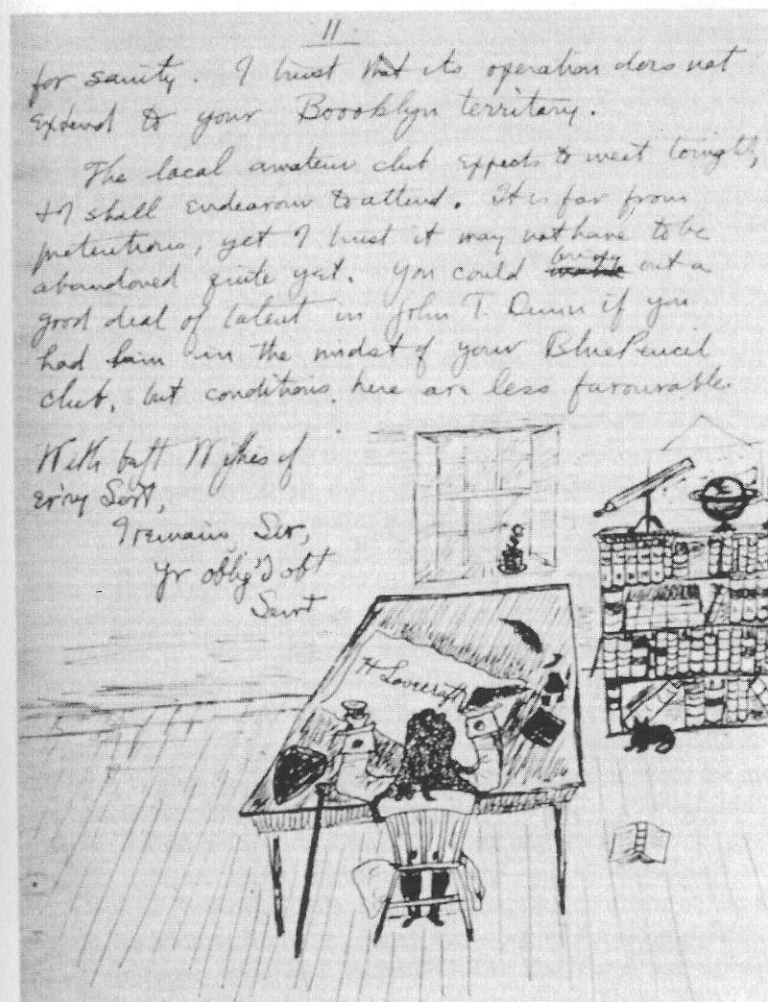 11.
for sanity. I trust that its operation does not
extend to your Boooklyn territory.
The local amateur club expects to meet tonight,
& I shall endeavour to attend. It is far from
pretentious, yet I trust it may not have to be
abandoned quite yet. You could bring out a
good deal of talent in John T. Dunn if you
had him in the midst of your Blue Pencil
club, but conditions here are less favourable.
With best Wishes of
ev'ry Sort,
I remain, Sir,
Yr oblig'd obt
Servt
H Lovecraft